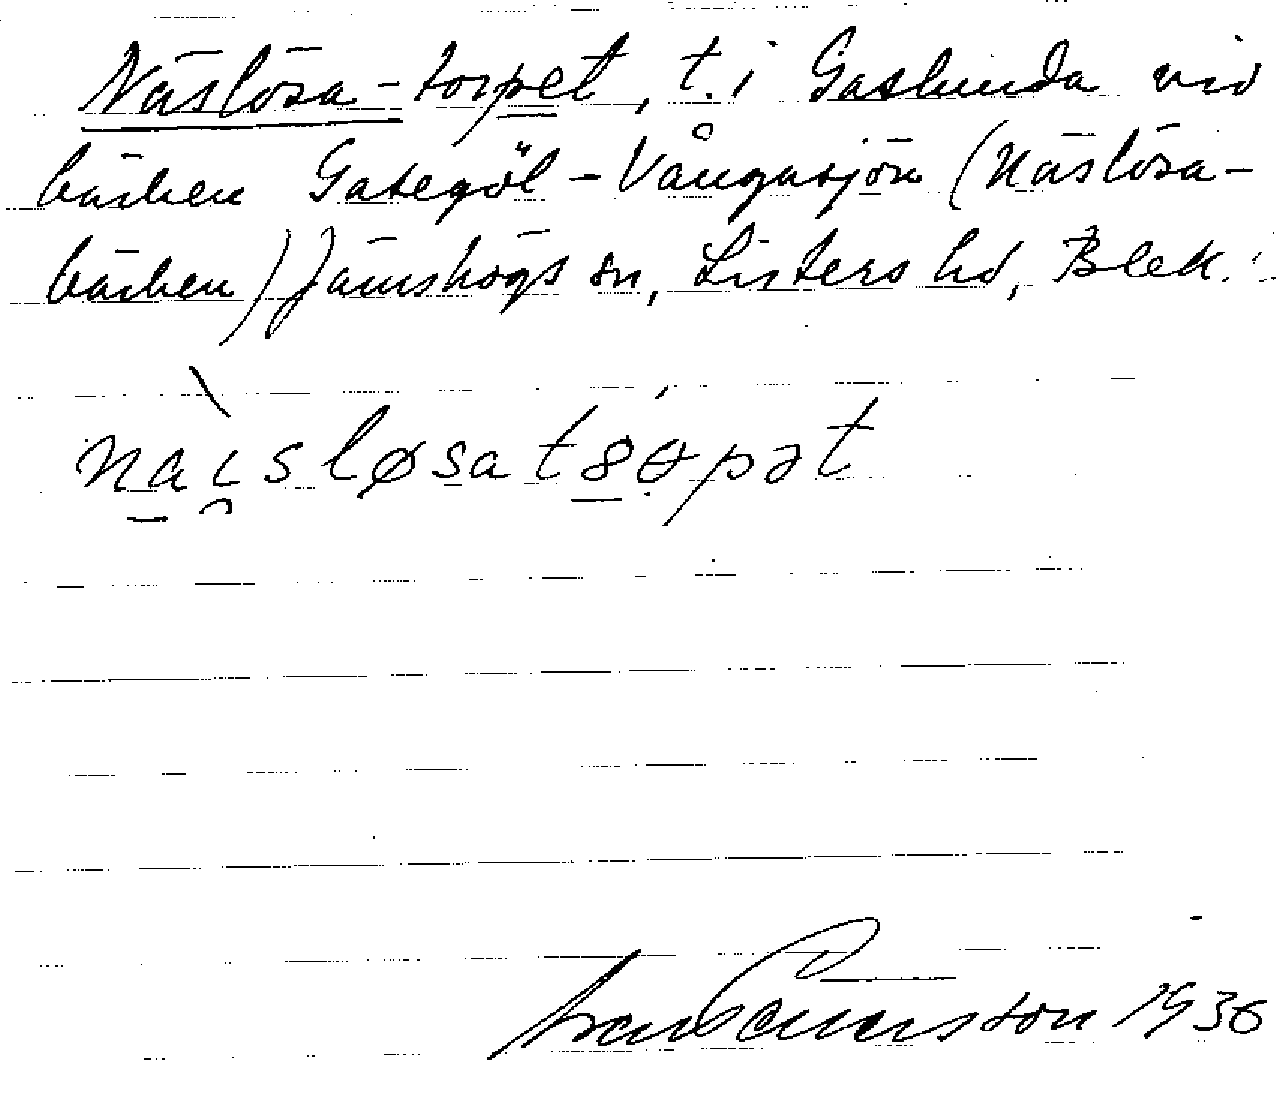 Näslösa-torpet, t. i Gaslunda vid
bäcken Gategöl - Vångasjön (Näslösa-
bäcken) Jämshögs sn, Listers hd, Blek.
nai̯sløsatɞɵpət
1936